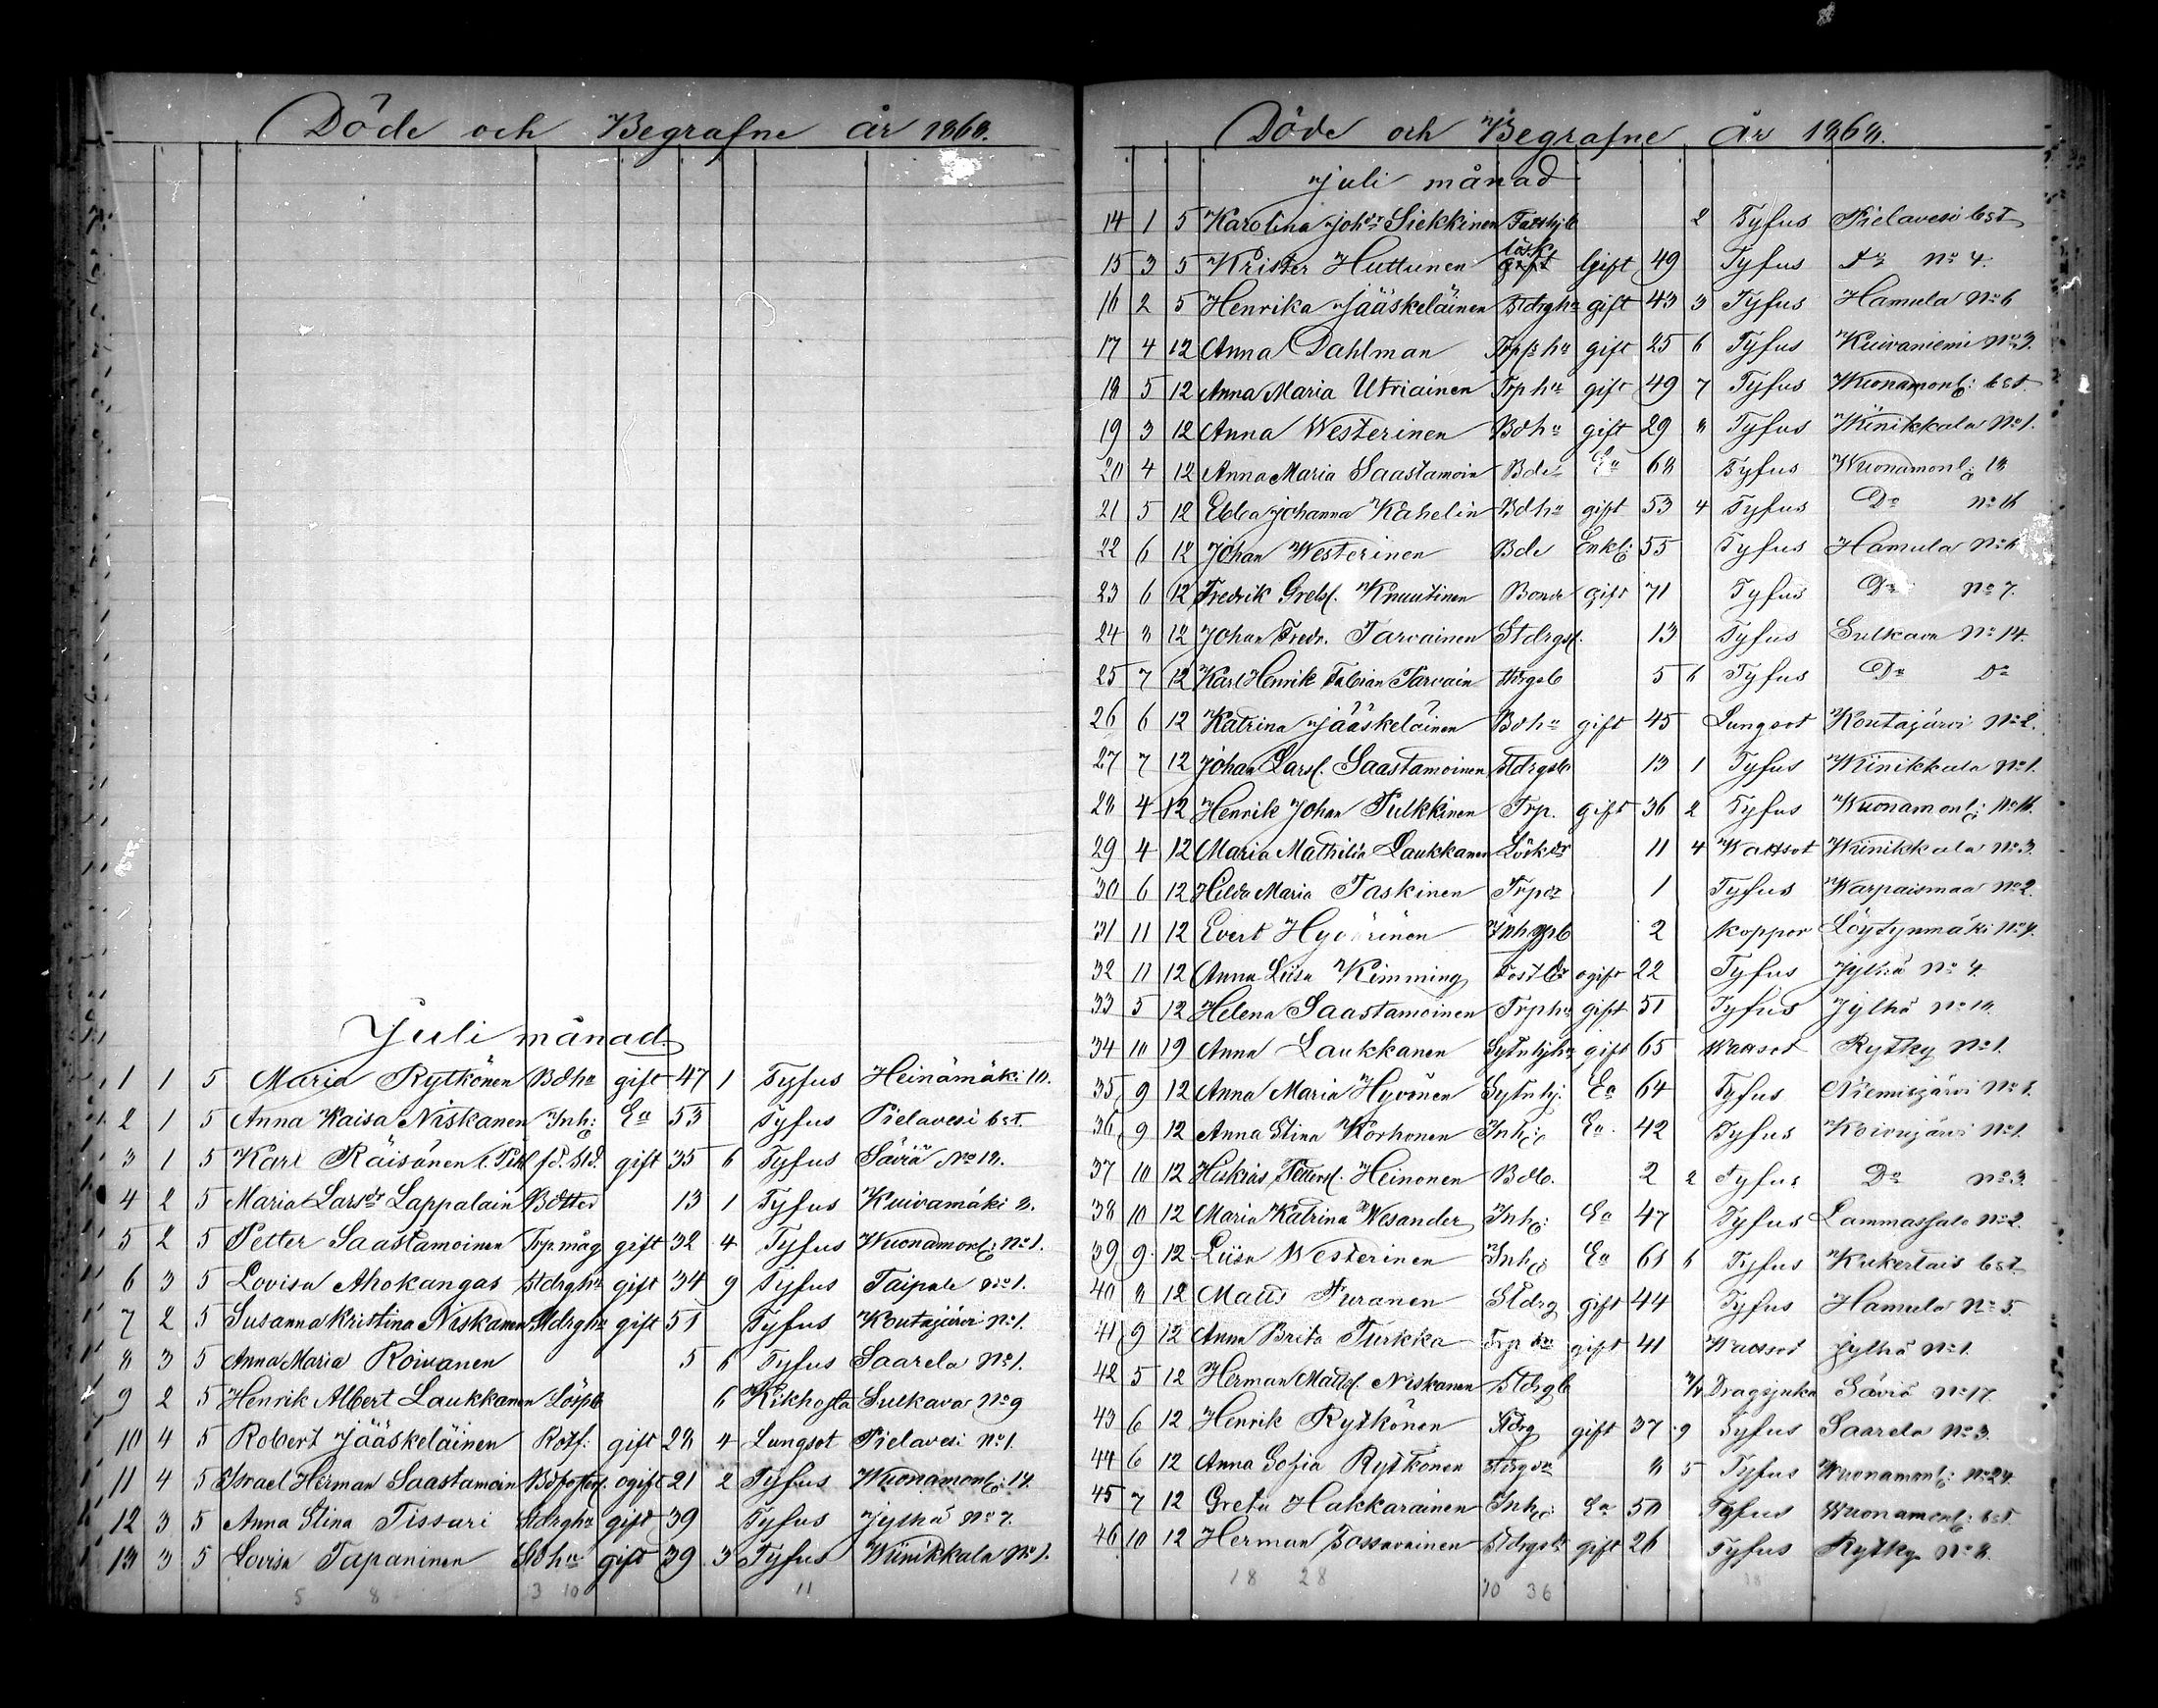 Döde och Begrafne år 1868.
Juli månad
1 1 5 Maria Rytkönen Bdha gift 47 1 Tyfus Heinämäki 10.
2 1 5 Anna Kaisa Niskanen Inh: Ea 53 Tyfus Pielavesi bst.
3 1 5 Karl Räisänen fd. Std. gift 35 6 Tyfus Säviä No 18.
4 2 5 Maria Larsdr Lappalain Bdtter 13 1 Tyfus Kuivamäki 3.
5 2 5 Petter Saastamoinen Trp. måg gift 32 4 Tyfus Wuonamonl: No 1.
6 3 5 Lovisa Ahokangas Stdrgha gift 34 9 Tyfus Taipale No 1.
7 2 5 Susanna Kristina Niskanen Stdrgha gift 51 Tyfus Koutajärvi No 1.
8 3 5 Anna Maria Koivanen 5 6 Tyfus Saarela No 1.
9 2 5 Henrik Albert Laukkanen 6 Kikhosta Sulkava No 9
10 4 5 Robert Jääskeläinen Rotf: gift 28 4 Lungsot Pielavesi No 1.
11 4 5 Israel Herman Saastamoin ogift 21 2 Tyfus Wuonamonl: 14.
12 3 5 Anna Stina Tissari Stdrgha gift 39 Tyfus Jylhä No 7.
13 3 5 Lovisa Tapaninen Bdha gift 39 3 Tyfus Wiinikkala No 1.
5 8 3 10 11
Döde och Begrafne år 1868.
Juli månad
14 1 5 Karolina Johdr Siekkinen 2 Tyfus Pielavesi bst
15 3 5 Krister Huttunen lösk gift 49 Tyfus Do No 4.
16 2 5 Henrika Jääskeläinen Stdrgha gift 43 3 Tyfus Hamula No 6
17 4 12 Anna Dahlman Trpsha gift 25 6 Tyfus Kuivaniemi No 3.
18 5 12 Anna Maria Utriainen Trpha gift 49 7 Tyfus Wuonamonl: bst.
19 3 12 Anna Westerinen Bdha gift 29 8 Tyfus Wiinikkala No 1.
20 4 12 Anna Maria Saastamoin Bde Ea 68 Tyfus Wuonamonl: 18
21 5 12 Ebba Johanna Kahelin Bdha gift 53 4 Tyfus Do No 16
22 6 12 Johan Westerinen Bde Enkl: 55 Tyfus Hamula No 6
23 6 12 Fredrik Gretss. Knuutinen Bonde gift 71 Tyfus Do No 7.
24 8 12 Johan Fredr. Tarvainen Stdrgss. 13 Tyfus Sulkava No 14.
25 7 12 Karl Henrik Fabian Tarvain Stdrgsb 5 6 Tyfus Do Do
26 6 12 Katrina Jääskeläinen Bdha gift 45 Lungsot Koutajärvi No 2.
27 7 12 Johan Larss. Saastamoinen Stdrgsb 13 1 Tyfus Wiinikkala No 1.
28 4 12 Henrik Johan Pulkkinen Trp. gift 36 2 Tyfus Wuonamonl: No 16.
29 4 12 Maria Mathilda Laukkanen Löskdr 11 4 Wattsot Wiinikkala No 3.
30 6 12 Hilda Maria Taskinen Trpdr 1 Tyfus Warpaismaa No 2.
31 11 12 Evert Hyvärinen 2 Koppor Löytynmäki No 4.
32 11 12 Anna Liisa Kimming ogift 22 Tyfus Jylhä No 4.
33 5 12 Helena Saastamoinen Trpha gift 51 Tyfus Jylhä No 10.
34 10 19 Anna Laukkanen Sytnhjha gift 65 Wattsot Rytky No 1.
35 9 12 Anna Maria Hyvönen Sytnhj: Ea 64 Tyfus Niemisjärvi No 1.
36 9 12 Anna Stina Korhonen Inh: Ea 42 Tyfus Koivujärvi No 1.
37 10 12 Hiskias Petterss. Heinonen Bdb. 2 2 Tyfus Do No 3.
38 10 12 Maria Katrina Wesander Inh: Ea 47 Tyfus Lammassalo No 2.
39 9 12 Liisa Westerinen Inh: Ea 61 6 Tyfus Kukertais bst.
40 8 12 Matts Puranen Stdrg gift 44 Tyfus Hamula No 5.
41 9 12 Anna Brita Turkka gift 41 Wattsot Jylhä No 1.
42 5 12 Herman Mattss. Niskanen Stdrgb Dragsjuka Säviä No 17.
43 6 12 Henrik Rytkönen Stdrg gift 37 9 Tyfus Saarela No 3.
44 6 12 Anna Sofia Rytkönen Stdrgdr 8 5 Tyfus Wuonamonl: No 24.
45 7 12 Greta Hakkarainen Inh: Ea 50 Tyfus Wuonamonl: bst.
46 10 12 Herman Tossavainen gift 26 Tyfus Rytky No 8.
18 28 10 36 18